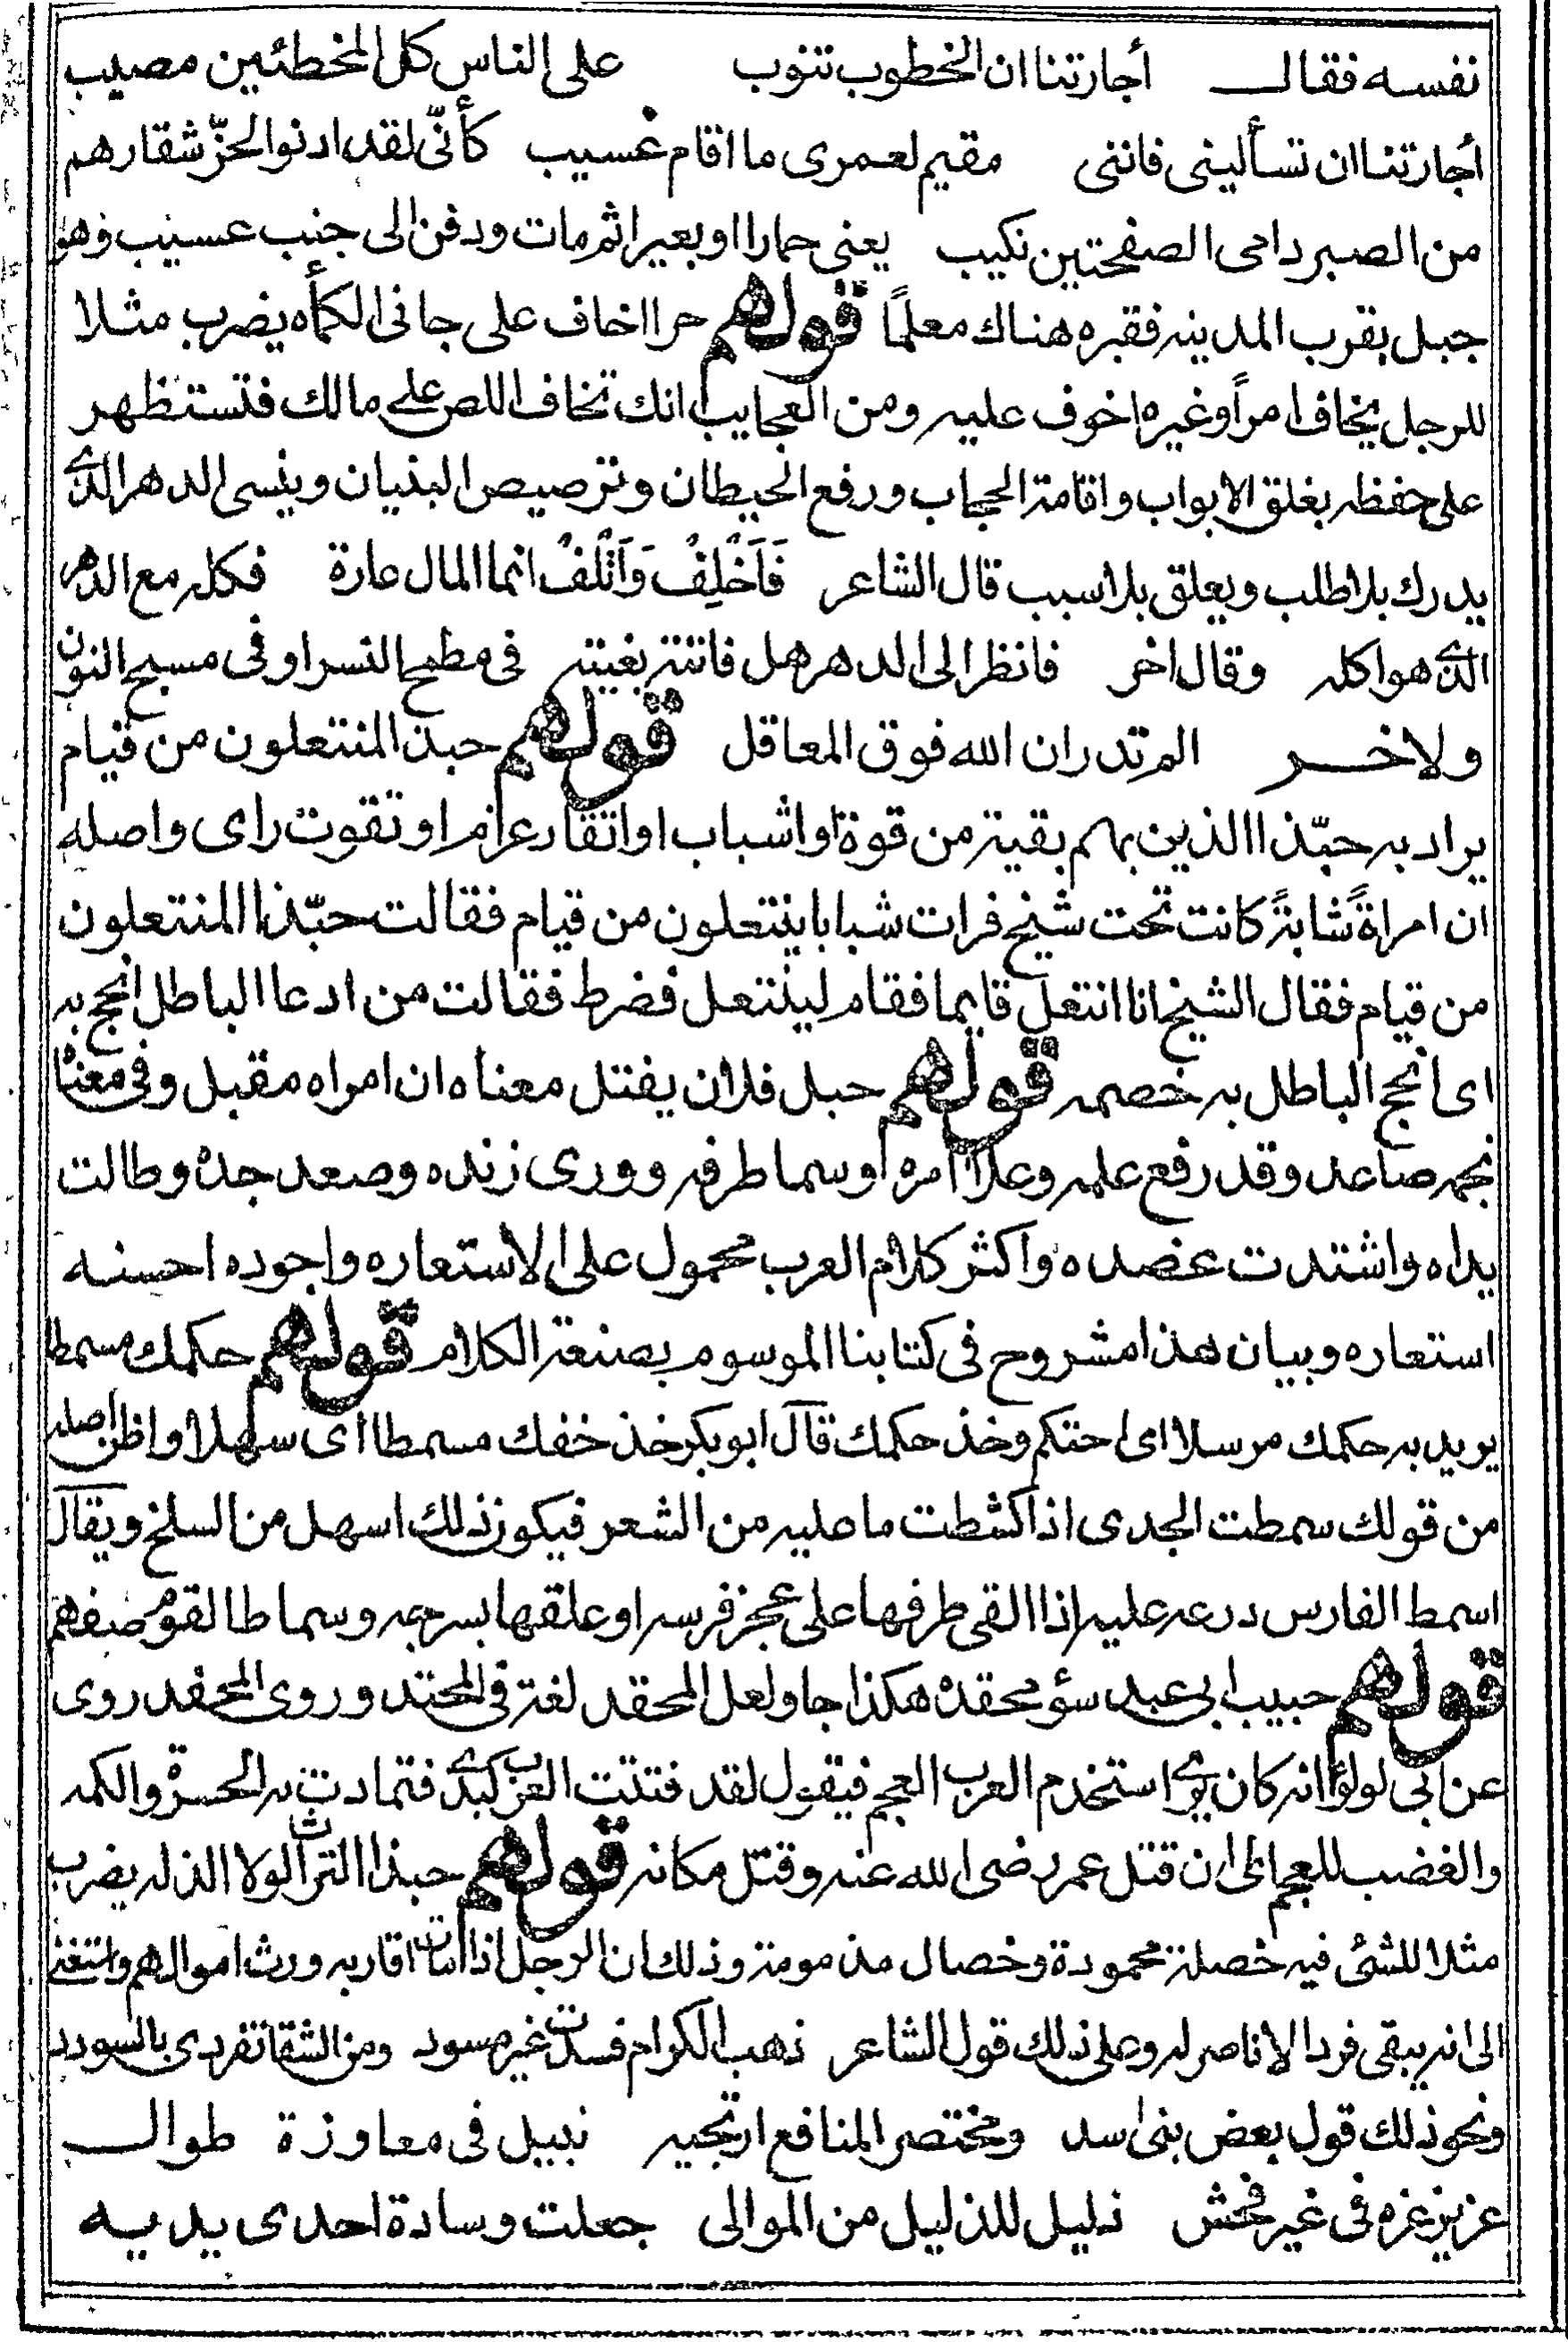 نفسه فقال أجارتنا ان الخطوب تنوب على الناس كل المخطئين مصيب
أجارتنا ان تسأليني فانني مقيم لعمرى ما اقام غسيب كأنّى لقد ادنوا لحزّ شقارهم
من الصبر دامى الصفحتين نكيب يعنى حمارا او بعيرا ثم مات ودفن الى جنب عسيب وهو
جبل بقرب المدينه فقبره هناك معلماً قولهم حرا اخاف على جانى الكمأه يضرب مثلا
للرجل يخاف امراً وغيره اخوف عليه ومن العجايب انك تخاف اللص على مالك فتستظهر
على حفظه بغلق الابواب واقامة الحجاب ورفع الحيطان وترصيص البنيان وينسى الدهر الذى
يدرك بلا طلب ويعلق بلا سبب قال الشاعر فَاَخْلِفْ وَاَتْلَفْ انما المال عارة فكله مع الدهر
الذى هو اكله وقال اخر فانظر الى الدهر هل فاتته بغيته فى مطمح النسر او فى مسبح النون
ولاخر الم تدر ان الله فوق المعاقل قولهم حبذا المنتعلون من قيام
يراد به حبّذا الذين بهم بقية من قوة او اشباب او اتقاد عزام او تقوت راى واصله
ان امراةً شابةً كانت تحت شيخ فرات شبابا ينتعلون من قيام فقالت حبّذا المنتعلون
من قيام فقال الشيخ انا انتعل قايما فقام لينتعل فضرط فقالت من ادعا الباطل انجح به
اى انجح الباطل به خصمه قولهم حبل فلان يفتل معناه ان امراه مقبل وفى معناه
نجمه صاعد وقد رفع علمه وعلا امره او سما طرفه وورى زنده وصعد جده وطالت
يداه واشتدت عضده واكثر كلام العرب محمول على الاستعاره واجوده احسنه
استعاره وبيان هذا مشروح فى كتابنا الموسوم بصنعة الكلام قولهم حكمك مسمطا
يريد به حكمك مرسلا اى احتكم وخذ حكمك قال ابو بكر خذ خفك مسمطا اى سهلا واظن اصله
من قولك سمطت الجدى اذا كشطت ما عليه من الشعر فيكون ذلك اسهل من السلخ ويقال
اسمط الفارس درعه عليه اذا القى طرفها على عجز فرسه او علقها بسرجه وسماطا القوم صفهم
قولهم حبيب ابى عبد سؤ محقده هكذا جا ولعل المحقد لغة فى المحتد وروى المحفد روى
عن ابى لولؤ انه كان يرى استخدم العرب العجم فيقول لقد فتتت العرب كبدى فتمادت به الحسرة والكمه
والغضب للعجم الى ان قتل عمر رضى الله عنه وقتل مكانه قولهم حبذا التراث لولا الذله يضرب
مثلا للشئ فيه خصلة محمودة وخصال مذمومة وذلك ان الرجل اذا مات اقاربه ورث اموالهم واستغنى
الى انه يبقى فردا لا ناصر له وعلى ذلك قول الشاعر ذهب الكرام فسدت غير مسود ومن الشقا تفردى بالسودد
ونحو ذلك قول بعض بنى اسد ومختصر المنافع ارتجيه نبيل فى معاوزة طوال
عزيز عزه فى غير فحش ذليل للذليل من الموالى جعلت وسادة احدى يديه